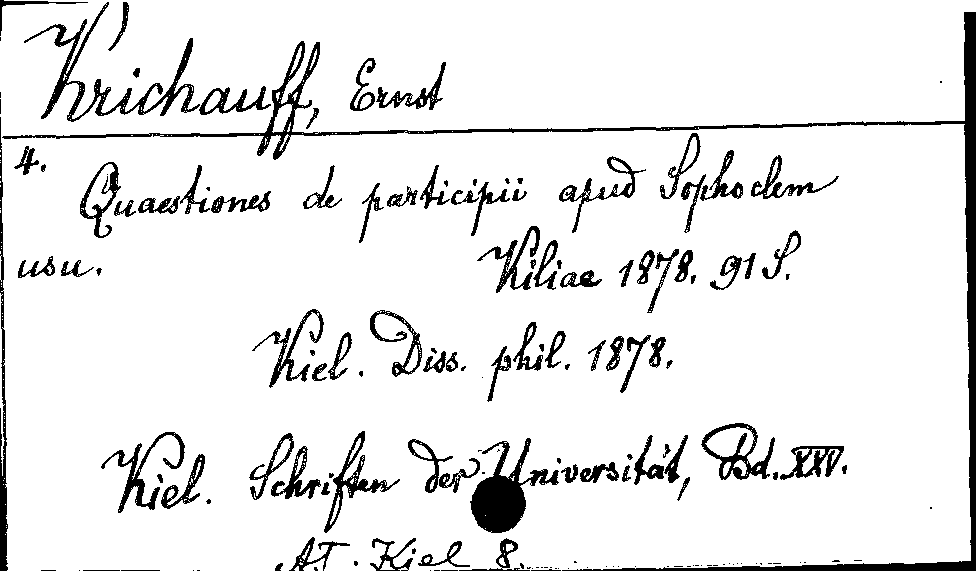 Krichauff, Ernst
4.
Quaestiones de participii apud Sophoclem
usu.
Kiliae 1878. 91 S.
Kiel. Diss. phil. 1878.
Kiel. Schriften der Universität, Bd. XXV.
AT. Kiel 8.